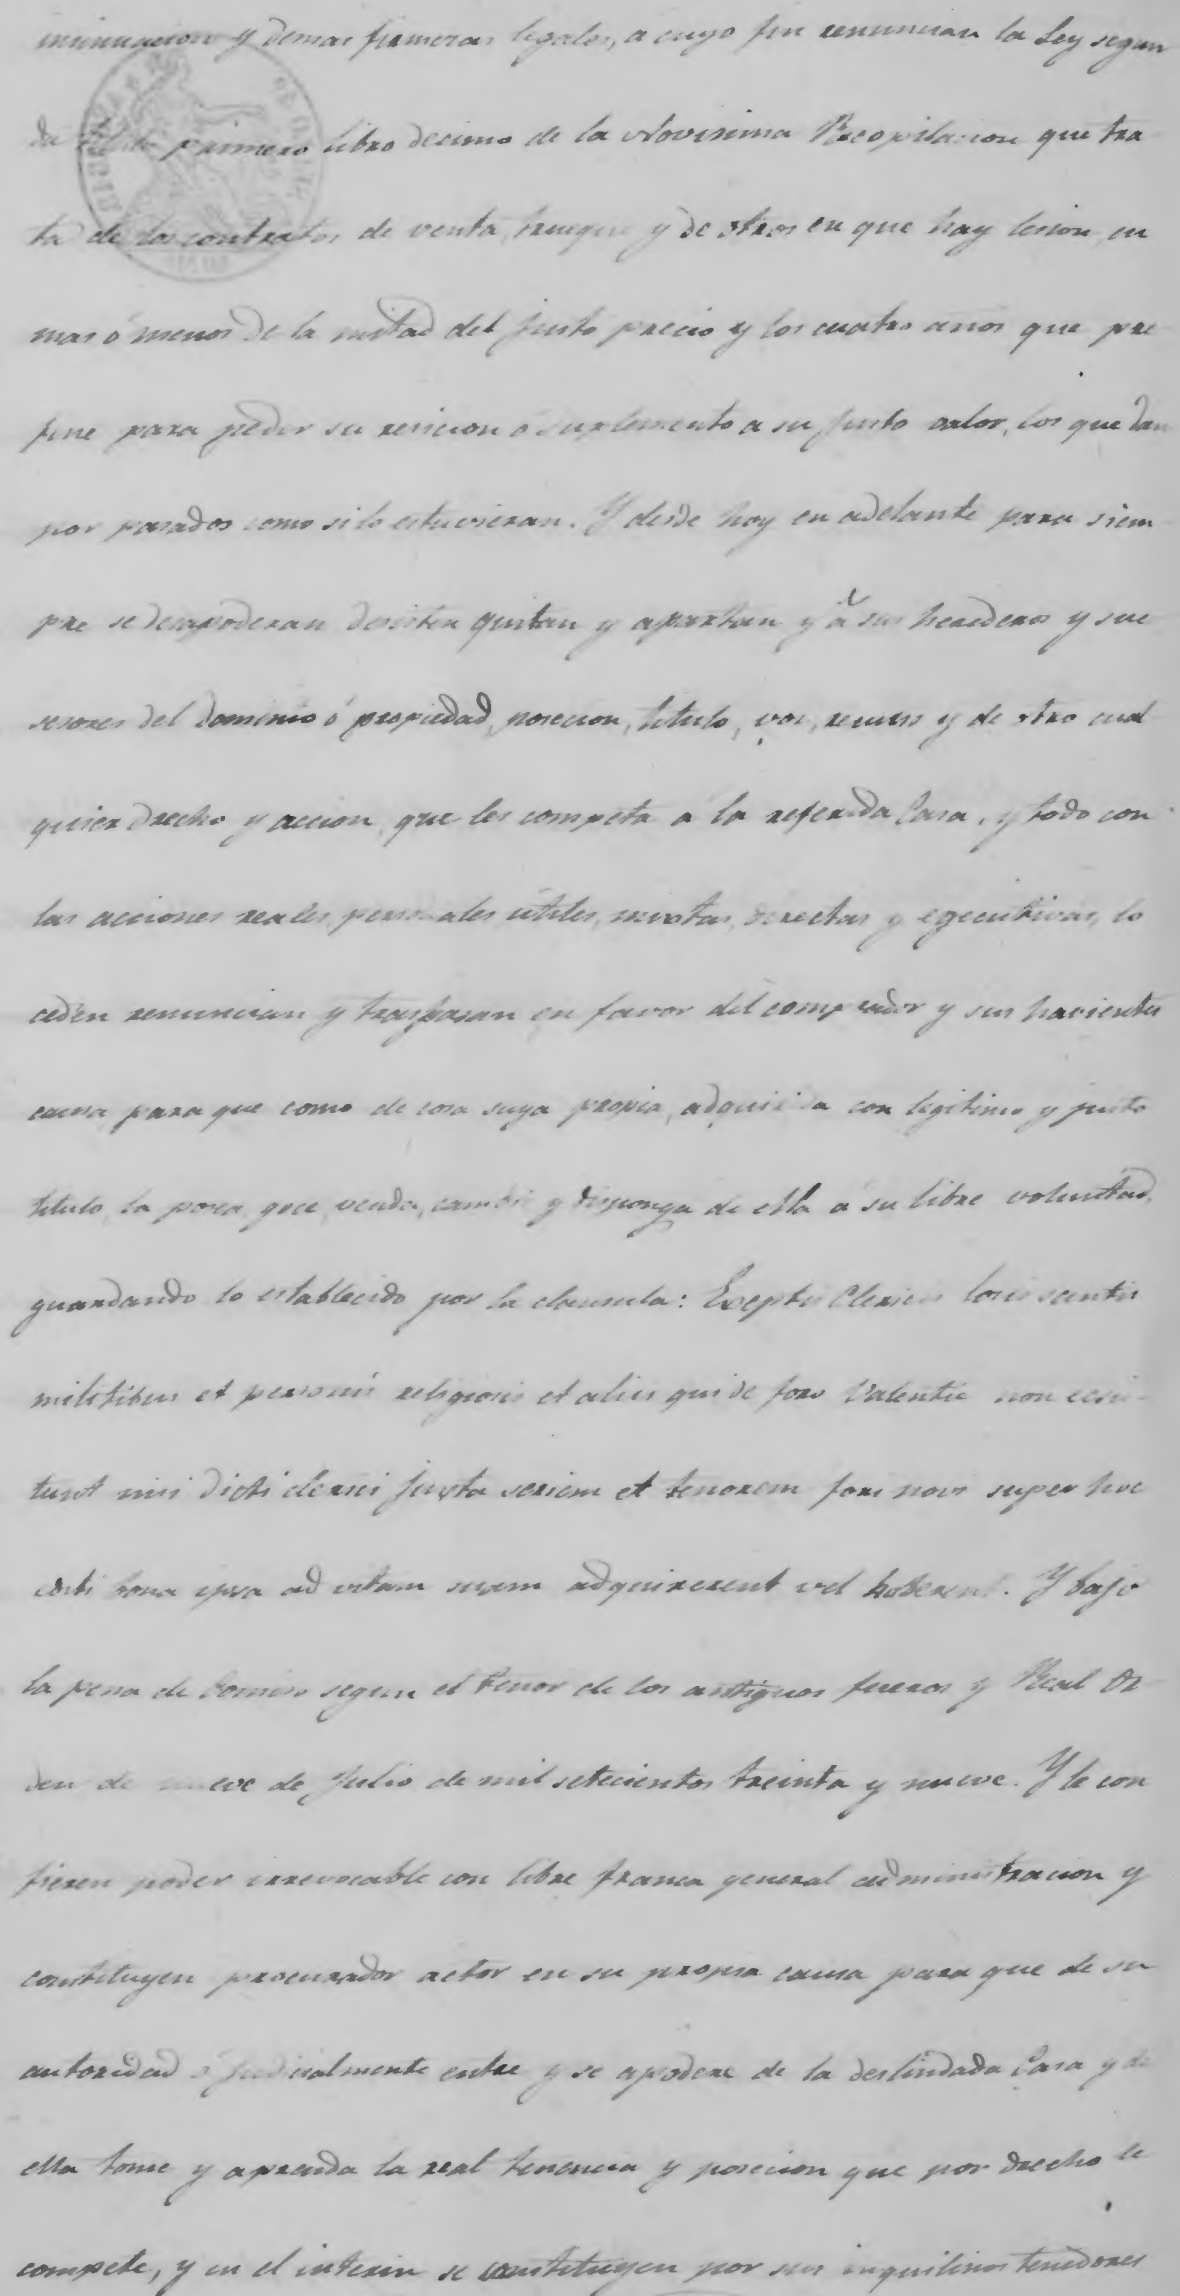 insinuacion y demas firmezas legales, a cuyo fin renuncian la Ley segun
da titulo primero libro decimo de la Novisima Recopilacion que tra
ta de los contratos de venta, trueque y de otros en que hay lesion en
mas ó menos de la mitad del justo precio y los cuatro años que pre
fine para pedir su recicion ó suplemento a su justo valor, los que dan
por pasados como si lo estuvieran. Y desde hoy en adelante para siem
pre se desapoderan desisten quitan y apartan y á sus herederos y suc
sesores del dominio ó propiedad, posecion, titulo, voz, recurso y de otro cual
quier drecho y accion, que les competa á la referida Casa, y todo con
las acciones reales, personales, utiles, mixtas, directas y egecutivas, lo
ceden renuncian y traspasan en favor del comprador y sus havientes
causa para que como de cosa suya propia, adquirida con legitimo y justo
titulo, la posea, goce, venda, cambie y disponga de ella á su libre voluntad,
guardando lo establecido por la clausula: Exceptis Clericis locis sanctis
militibus et personis religiosis et aliis qui de foro Valentie non
nisi dicti clerici juxta seriem et tenorem fori novi super hoc
editi bona ipsa ad vitam suam adquirerent vel haberent. Y bajo
la pena de Comiso segun el tenor de los antiguos fueros y Real Or
den de nueve de Julio de mil setecientos treinta y nueve. Y le con
fieren poder irrevocable con libre franca general administracion y
constituyen procurador actor en su propia causa para que de su
autoridad ó judicialmente entre y se apodere de la deslindada Casa y de
ella tome y aprenda la real tenencia y posecion que por drecho le
compete, y en el interin se constituyen por sus inquilinos tenedores